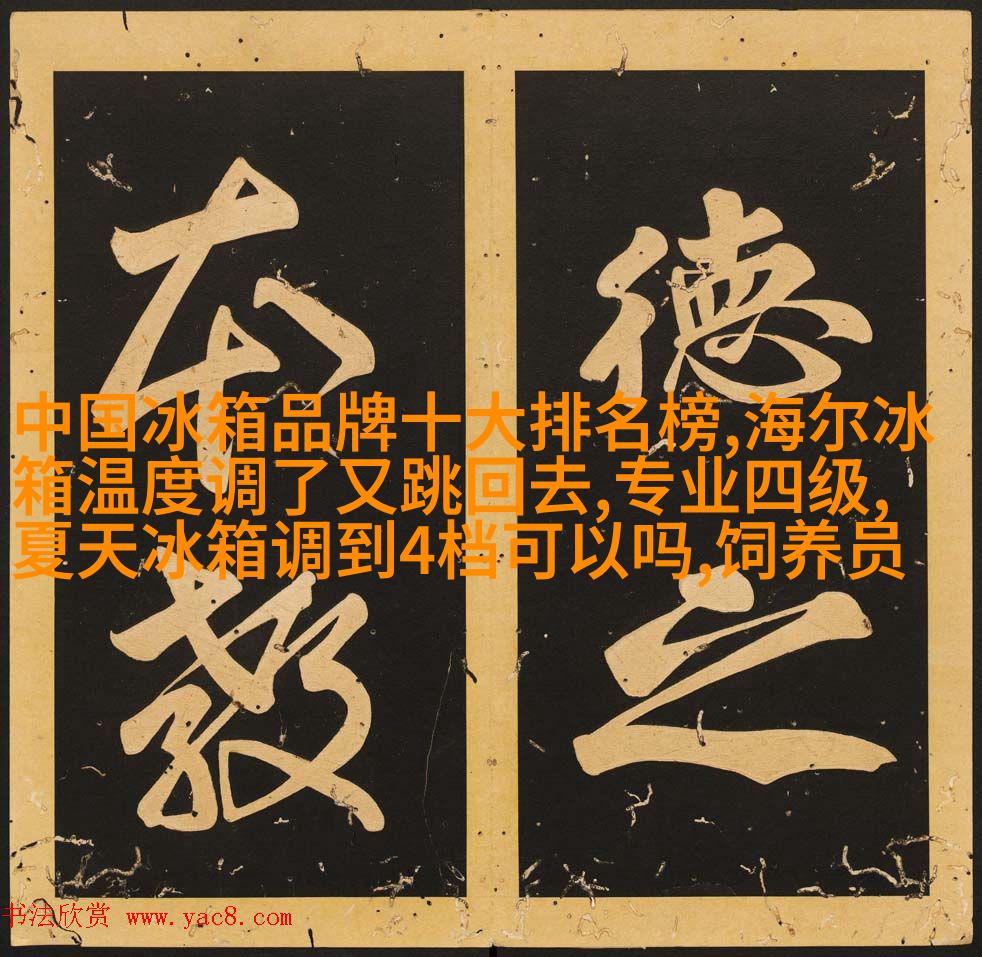 德之
本教
中国冰箱品牌十大排名榜,海尔冰
箱温度调了又跳回去,专业四级,
夏天冰箱调到4档可以吗,饲养员
书法欣赏 www.yac8.com